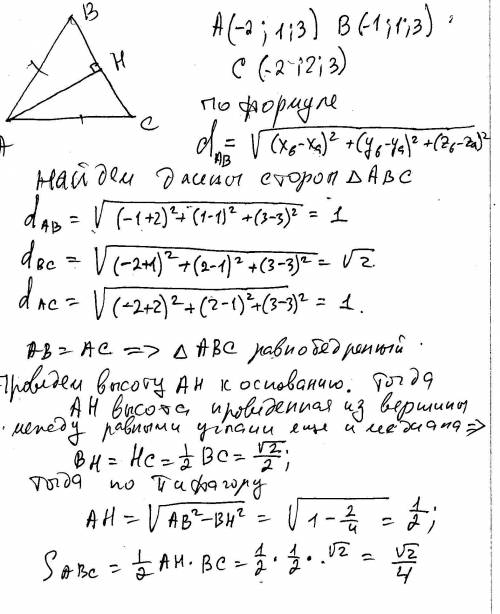 B
H
C
A
A(-2; 1; 3) B(-1; 1; 3).
C(-2; 2; 3)
по формуле
d_AB = √((x_B-x_A)² + (y_B-y_A)² + (z_B-z_A)²)
найдем длины сторон △ABC
d_AB = √((-1+2)² + (1-1)² + (3-3)²) = 1
d_BC = √((-2+1)² + (2-1)² + (3-3)²) = √2
d_AC = √((-2+2)² + (2-1)² + (3-3)²) = 1.
AB = AC => △ABC равнобедренный.
Проведем высоту AH к основанию. Тогда
AH высота проведенная из вершины
между равными углами еще и медиана =>
BH = HC = 1/2 BC = √2/2;
Тогда по Пифагору
AH = √(AB² - BH²) = √(1 - 2/4) = 1/2;
S_ABC = 1/2 AH · BC = 1/2 · 1/2 · √2 = √2/4